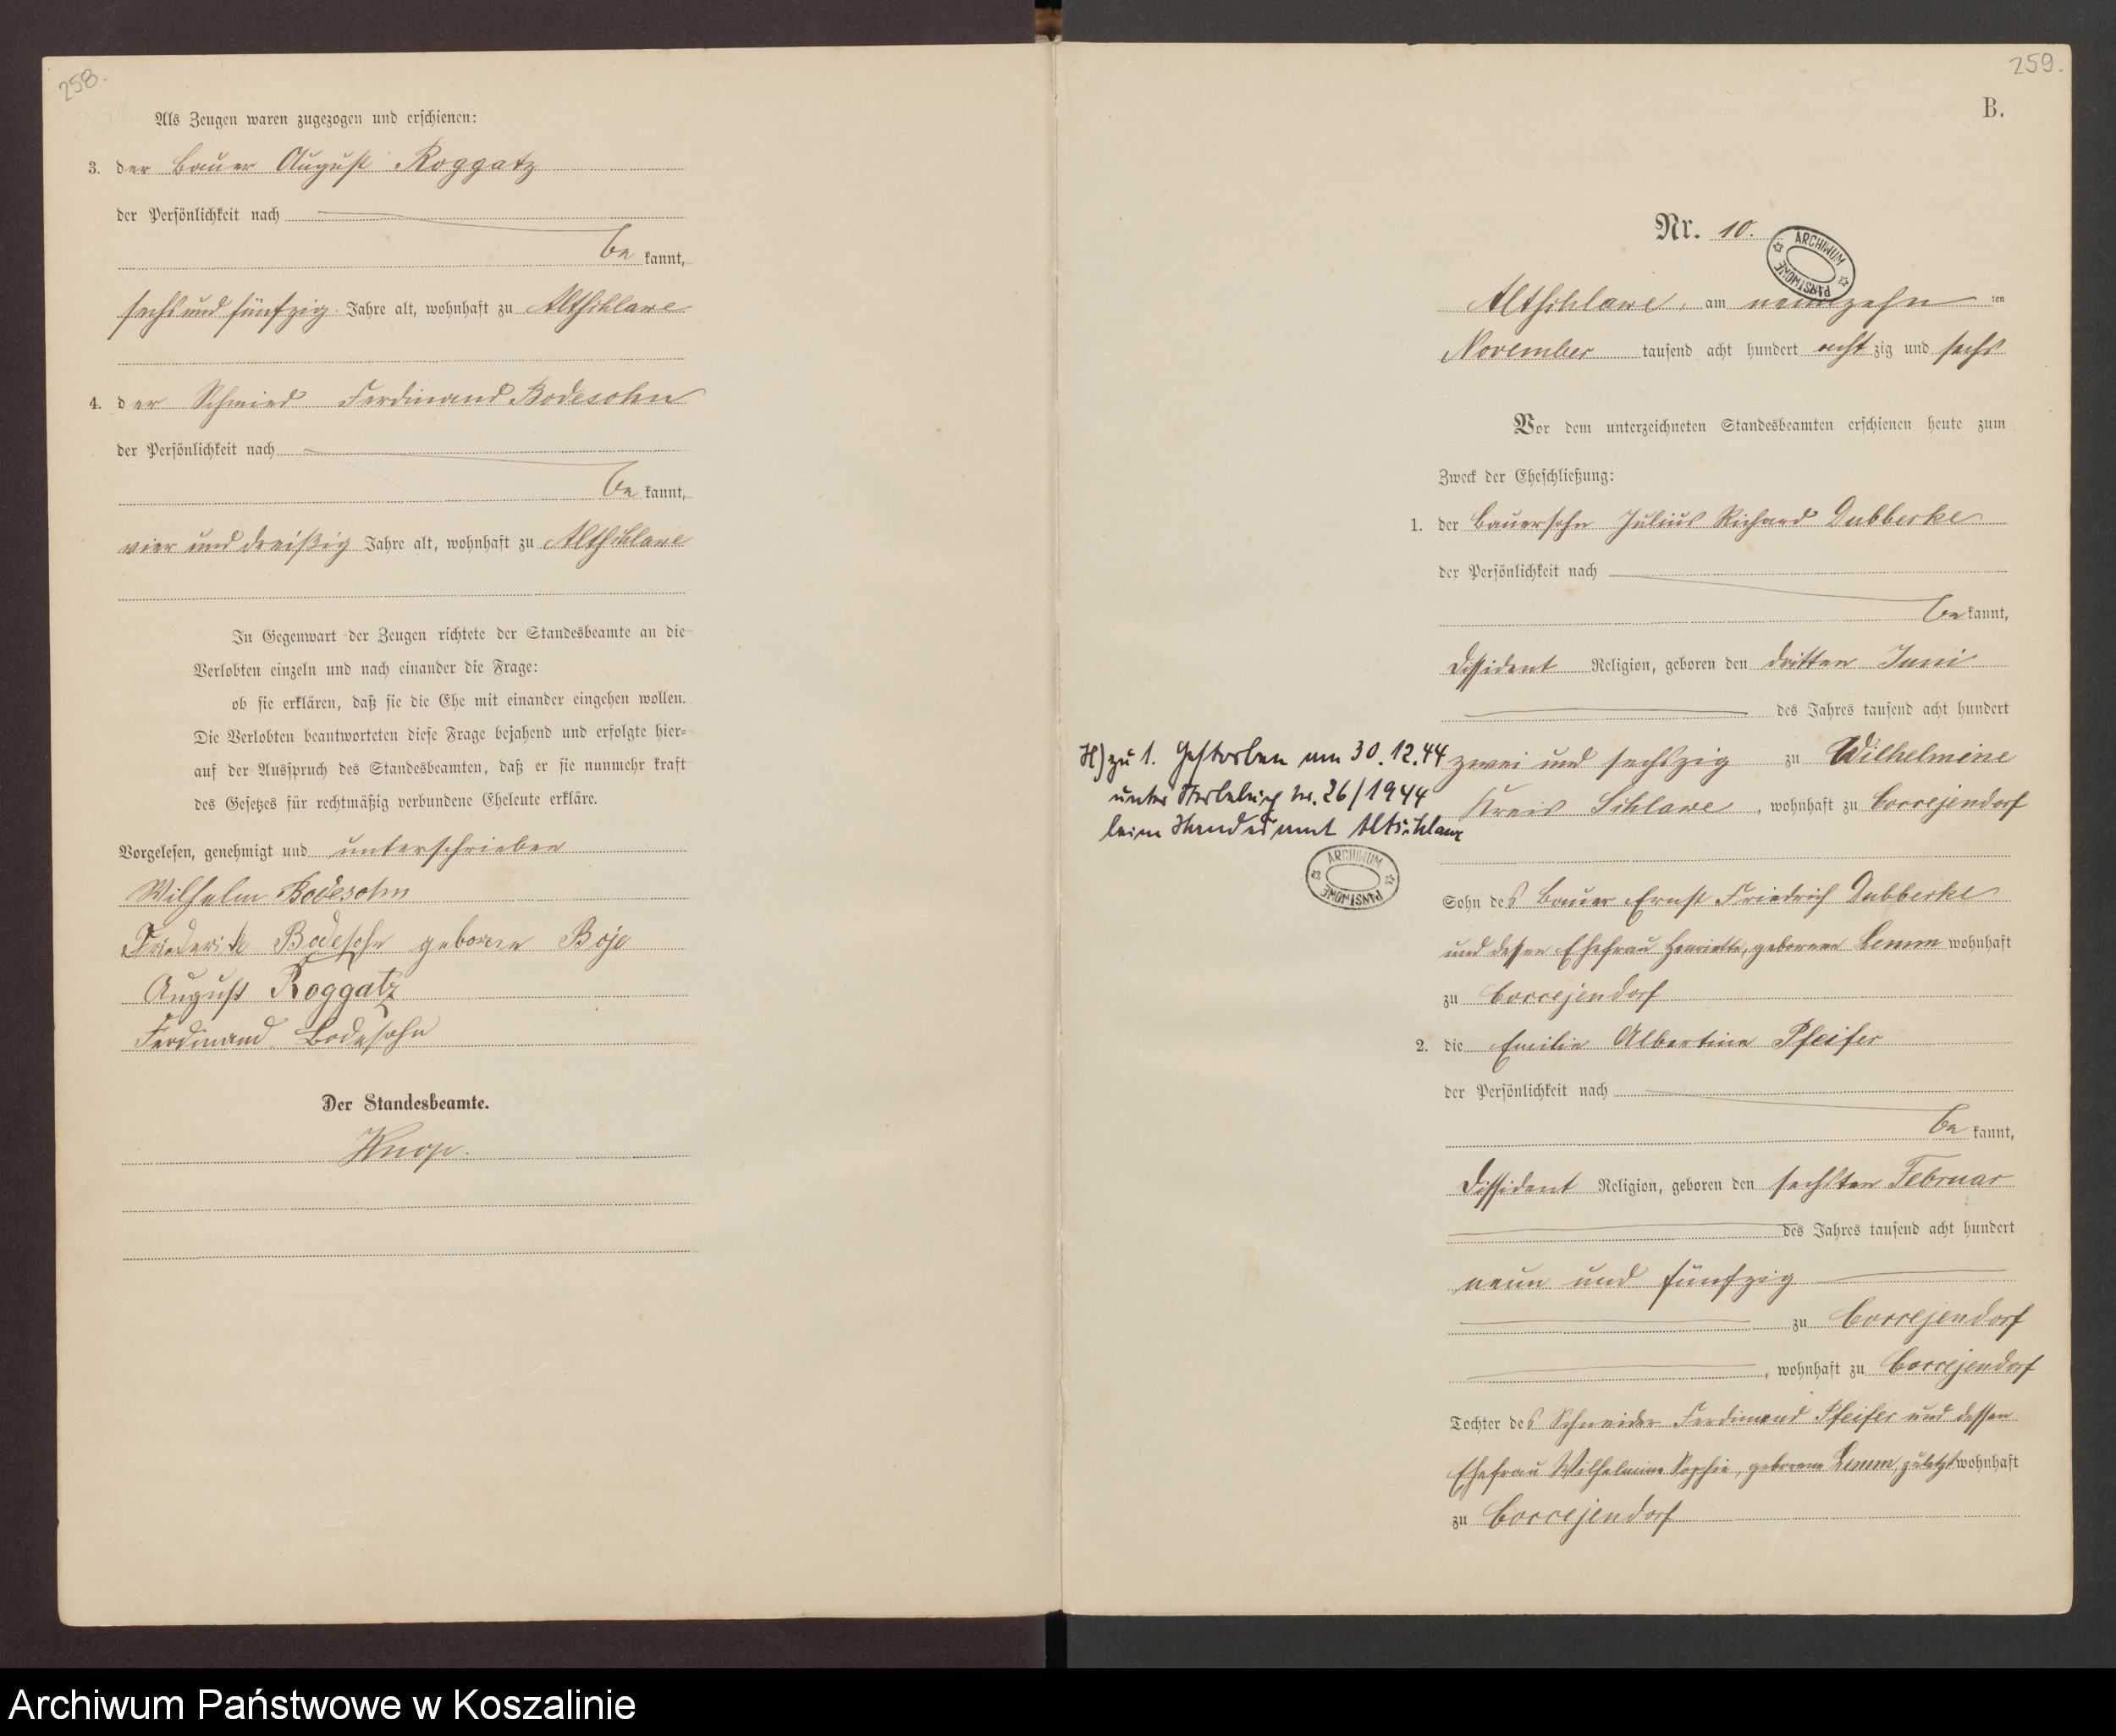 258.
Als Zeugen waren zugezogen und erschienen:
3. der Bauer August Roggatz
der Persönlichkeit nach
be kannt,
sechs und fünfzig Jahre alt, wohnhaft zu Altschlawe
4. der Schmied Ferdinand Bodesohn
der Persönlichkeit nach
be kannt,
vier und dreißig Jahre alt, wohnhaft zu Altschlawe
In Gegenwart der Zeugen richtete der Standesbeamte an die
Verlobten einzeln und nach einander die Frage:
ob sie erklären, daß sie die Ehe mit einander eingehen wollen.
Die Verlobten beantworteten diese Frage bejahend und erfolgte hier-
auf der Ausspruch des Standesbeamten, daß er sie nunmehr kraft
des Gesetzes für rechtmäßig verbundene Eheleute erkläre.
Vorgelesen, genehmigt und unterschrieben
Wilhelm Bodesohn
Friederike Bodesohn geborene Boje
August Roggatz
Ferdinand Bodesohn
Der Standesbeamte.
Knop.
259.
B.
Nr. 10.
ARCHIWUM PAŃSTWOWE
Altschlawe, am neunzehn ten
November tausend acht hundert acht zig und sechs
Vor dem unterzeichneten Standesbeamten erschienen heute zum
Zweck der Eheschließung:
1. der Bauersohn Julius Richard Dubberke
der Persönlichkeit nach
be kannt,
Dissident Religion, geboren den dritten Juni
des Jahres tausend acht hundert
zwei und sechszig zu Wilhelmine
Kreis Schlawe, wohnhaft zu Coccejendorf
H) zu 1. Gestorben am 30.12.44
unter Sterbebuch Nr. 26/1944
beim Standesamt Altschlawe
ARCHIWUM PAŃSTWOWE
Sohn des Bauer Ernst Friedrich Dubberke
und dessen Ehefrau Henriette, geborene Lemm wohnhaft
zu Coccejendorf
2. die Emilie Albertine Pfeifer
der Persönlichkeit nach
be kannt,
Dissident Religion, geboren den sechsten Februar
des Jahres tausend acht hundert
neun und fünfzig
zu Coccejendorf
, wohnhaft zu Coccejendorf
Tochter des Schneider Ferdinand Pfeifer und dessen
Ehefrau Wilhelmine Sophie, geborene Lemm, zuletzt wohnhaft
zu Coccejendorf
Archiwum Państwowe w Koszalinie